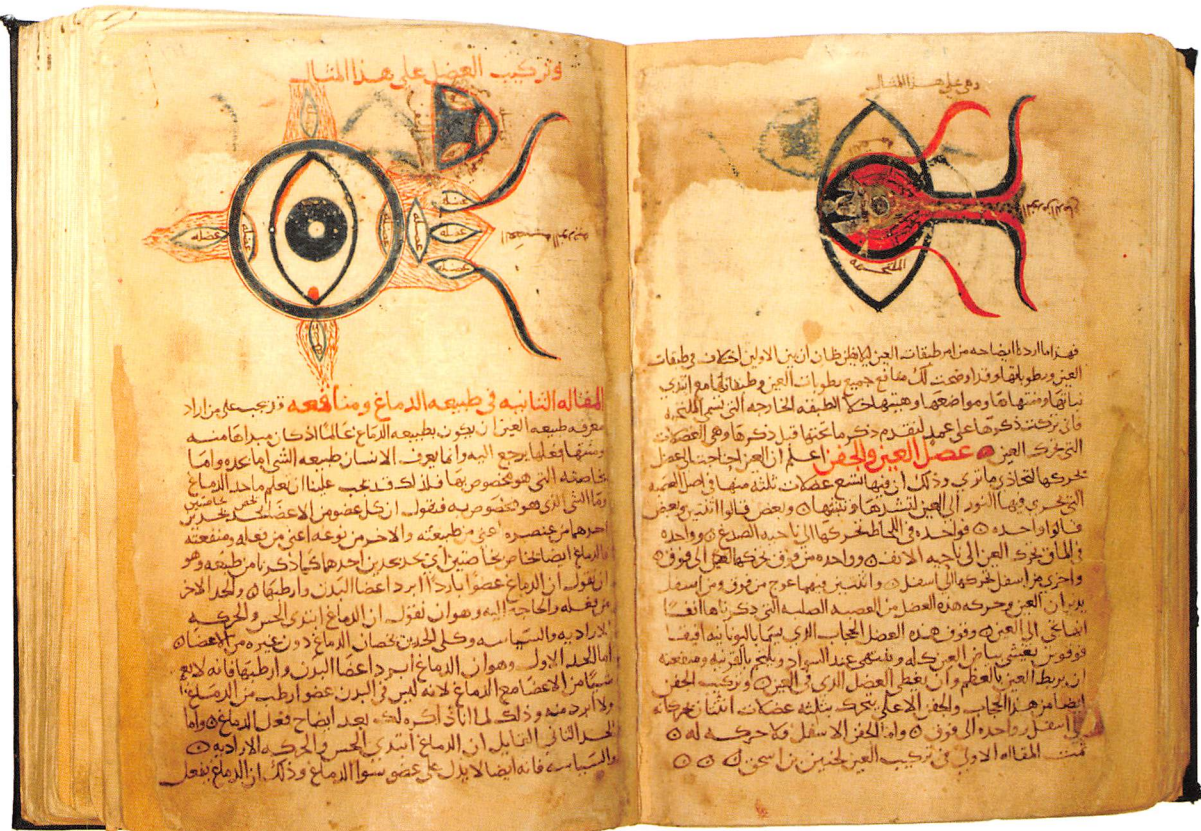 وهي على هذا المثال
الملتحمة
فهذا ما اردنا ايضاحه من امر طبقات العين فلا يظن ظان ان بين الاولين اختلاف في طبقات
العين ورطوباتها وقد اوضحت لك منافع جميع رطوبات العين وطبقاتها مع ابتدي
نباتها ومنتهاها ومواضعها وهيتها خلا الطبقه الخارجه التي تسمى الملتحمه
فاني تركت ذكرها على عمد ليتقدم ذكر ما تحتها قبل ذكرها وهي العضلات
التي تحرك العين عضل العين والجفن اعلم ان العين احتاجت الى عضل
يحركها لتحاذي ما تري وذلك ان فيها تسع عضلات ثلثه منها في اصل العصبه
التي يجري فيها النور الى العين لتشدها وتثبتها وبعض قالوا اثنتين وبعض
قالوا واحده فواحده في اللحاظ تحركها الى ناحيه الصدغ وواحده
في الماق تحرك العين الى ناحيه الانف وواحده من فوق تحرك العين الى فوق
واخرى من اسفل تحركها الى اسفل واثنتين فيهما عوج من فوق ومن اسفل
يديران العين وحركه هذه العضل من العصبه الصلبه التي ذكرناها انفا
انها تجي الى العين وفوق هذه العضل الحجاب الذي يسما باليونانيه افيفا
فوقوس يغشي بياض العين كله وينتهي عند السواد ويلتحم بالقرنيه ومنفعته
ان يربط العين بالعظم وان يغطي العضل الذي في العين وتركيب الجفن
ايضا من هذا الحجاب والجفن الاعلى يتحرك بثلثه عضلات اثنتان تحركانه
الى اسفل وواحده الى فوق واما الجفن الاسفل فلا حركه له
تمت المقاله الاولى في تركيب العين لحنين بن اسحق
وتركيب العضل على هذا المثال
عضله
عضله
عضله
عضله
عضله
المقاله الثانيه في طبيعه الدماغ ومنافعه قد يجب على من اراد
معرفه طبيعه العين ان يكون بطبيعه الدماغ عالما اذ كان مبداها منه
ومنتها فعلها يرجع اليه وانما يعرف الانسان طبيعه الشي اما بحده واما
بخاصته التي هو مخصوص بها فلذلك قد يجب علينا ان نعلم ما حد الدماغ
وما الشي الذي هو مخصوص به فنقول ان كل عضو من الاعضا يحد بحدين
احدهما من عنصره اعني من طبيعته والاخر من نوعه اعني من فعله ومنفعته
والدماغ ايضا بخاصتين اي يحد بحدين احدهما كما ذكرنا من طبيعه وهو
ان نقول ان الدماغ عضوا باردا ابرد اعضا البدن وارطبها والحد الاخر
من فعله والحاجه اليه وهو ان نقول ان الدماغ ابتدي الحس والحركه
الاراديه والسياسه وكلى الحدين يخصان الدماغ دون غيره من الاعضا
اما الحد الاول وهو ان الدماغ ابرد اعضا البدن وارطبها فانه لا يعم
شيا من الاعضا مع الدماغ لانه ليس في البدن عضو ارطب من الدماغ
ولا ابرد منه وذلك لما انا ذاكره لك بعد ايضاح فعل الدماغ واما
الحد الثاني القايل ان الدماغ ابتدي الحس والحركه الاراديه
والسياسه فانه ايضا لا يدل على عضو سوا الدماغ وذلك ان الدماغ يفعل